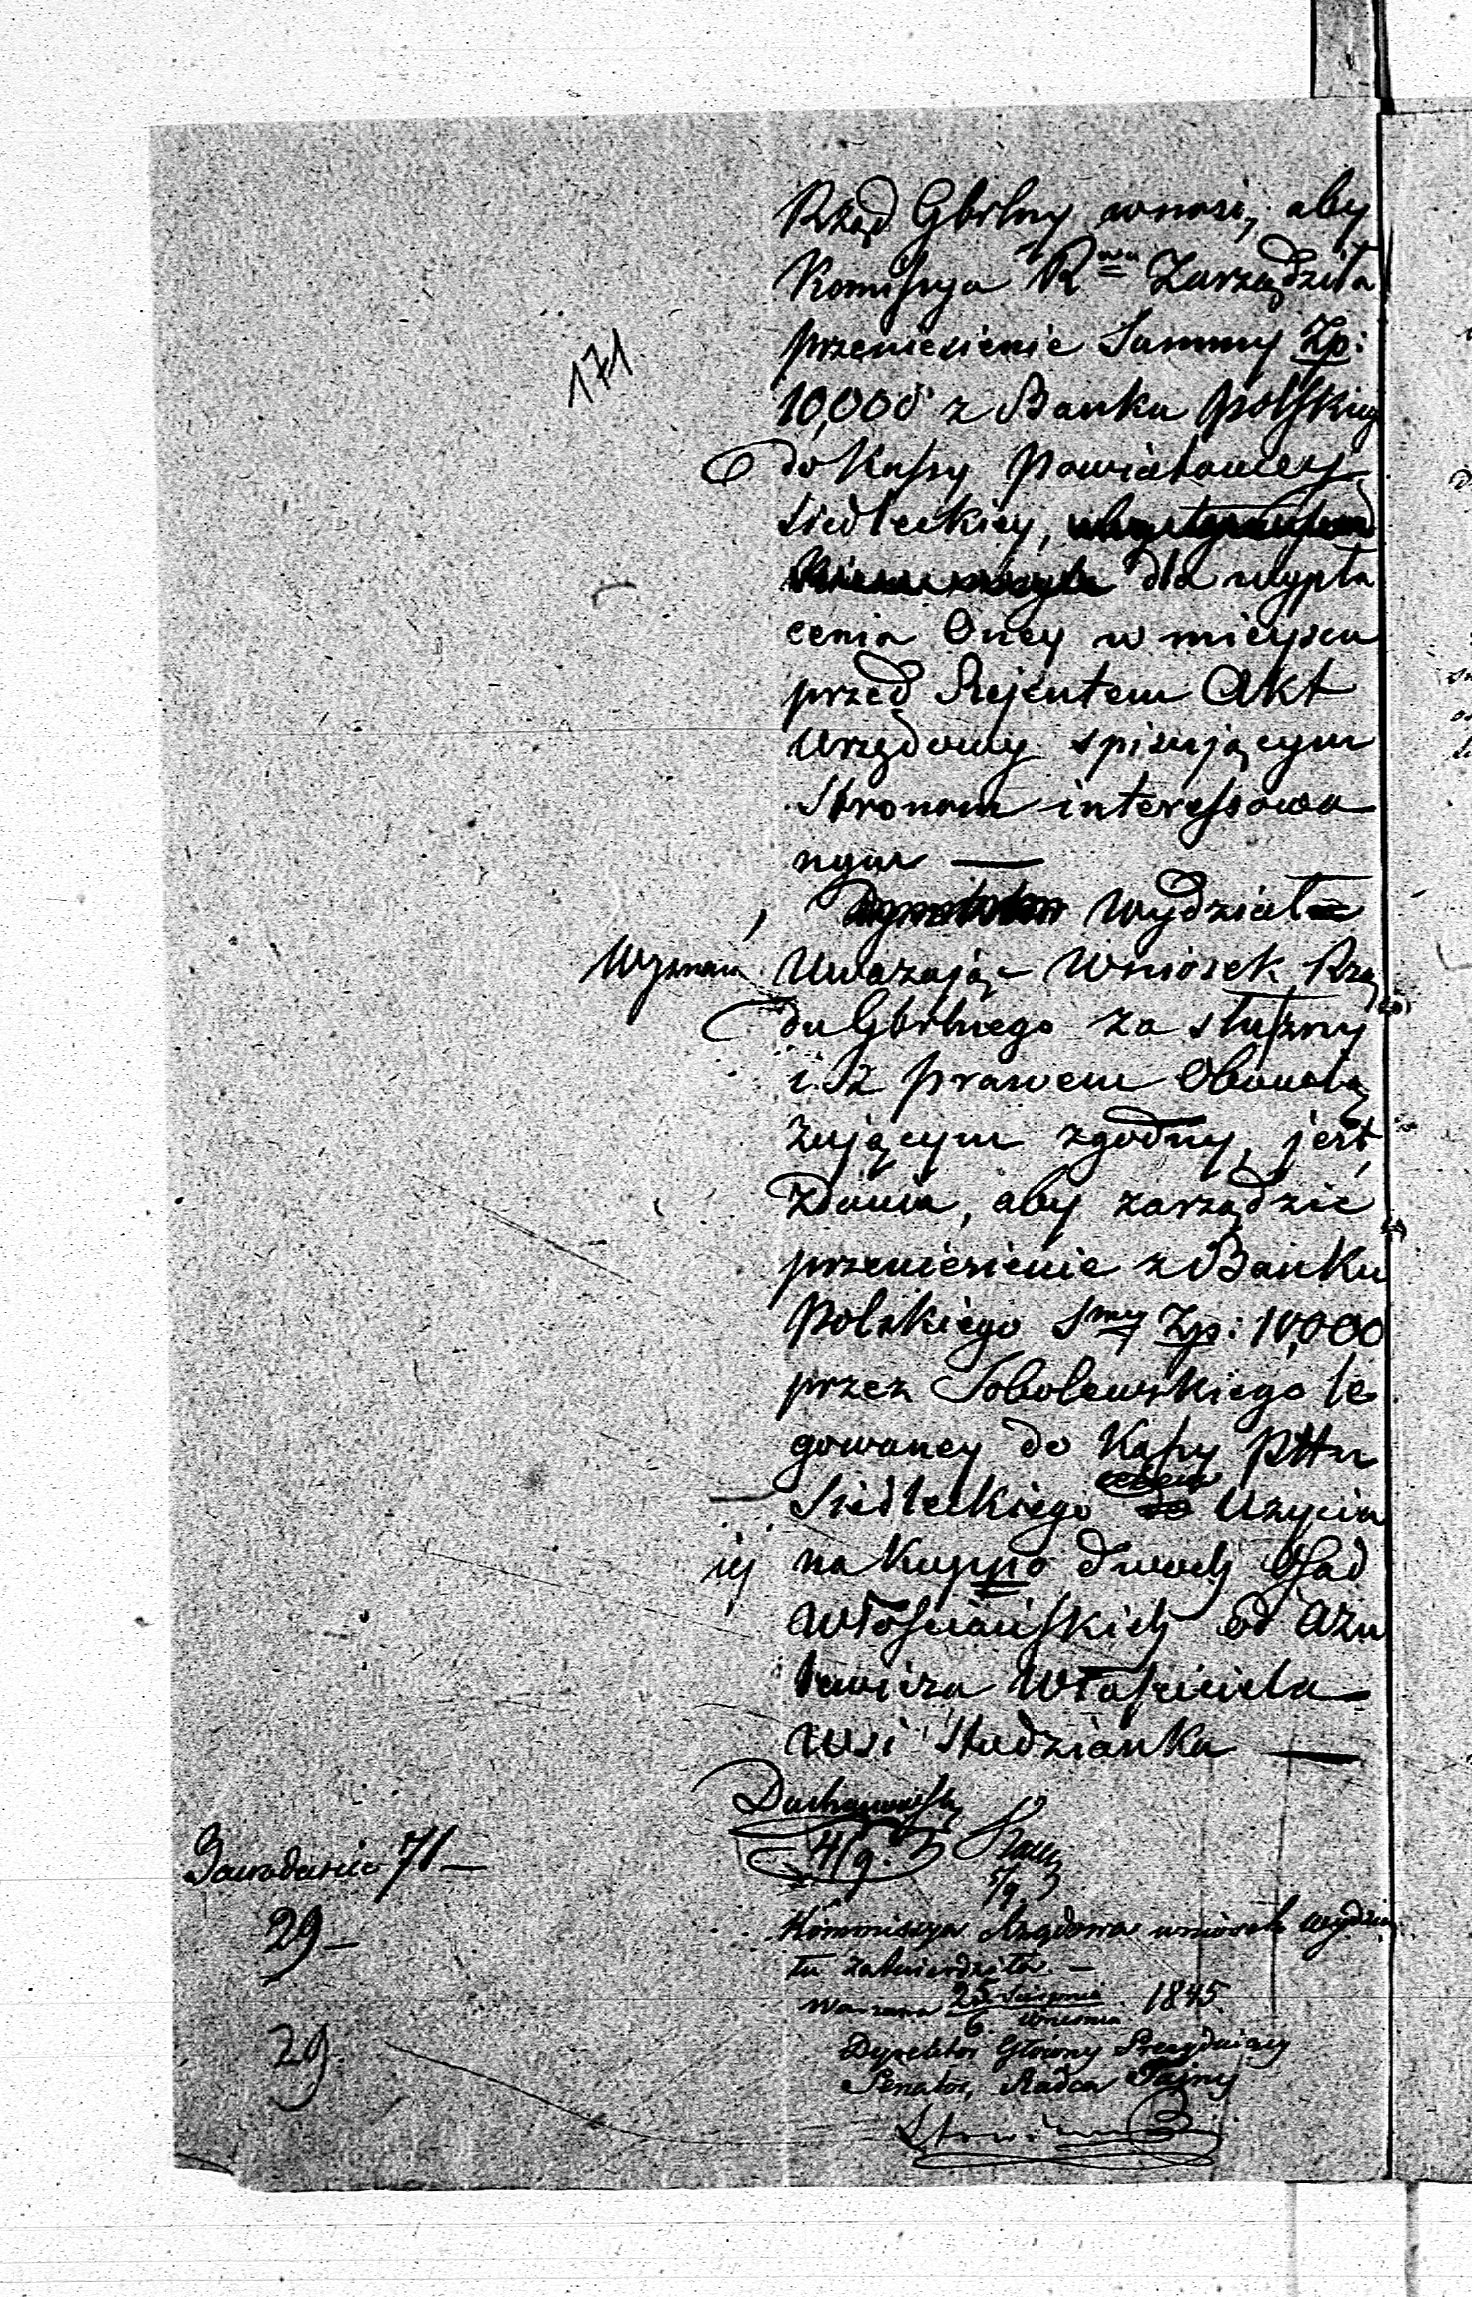 171
Rząd Gbrlny wnosi, aby
Kommissya R wa Zarządziła
przeniesienie Summy Zp:
10,000 z Banku Polskiego
do Kassy Powiatowey
Siedleckiey,
dla wypła
cenia Oney w mieyscu
przed Rejentem Akt
Urzędowy spisującym
Stronom interessowa
nym —
Wydział
Uważając Wniosek Rzą
du Gbrlnego za słuszny
i z prawem Obowią
zującym zgodny, jest
Zdania, aby zarządzić
przeniesienie z Banku
Polskiego Smy Zp: 10,000
przez Sobolewskiego le
gowaney do Kassy Pttu
Siedleckiego celem Użycia
iey na Kupno dwóch Osad
Włościańskich od Azu
lewicza Właściciela
Wsi Studzianka —
4/9.
5/9.
71 —
29 —
29.
Kommissya Rządowa wniosek Wydzia
łu zatwierdziła. —
Warszawa 25 Sierpnia / 6. Wrzesnia 1845
Dyrektor Główny Prezydujący
Senator, Radca Tajny